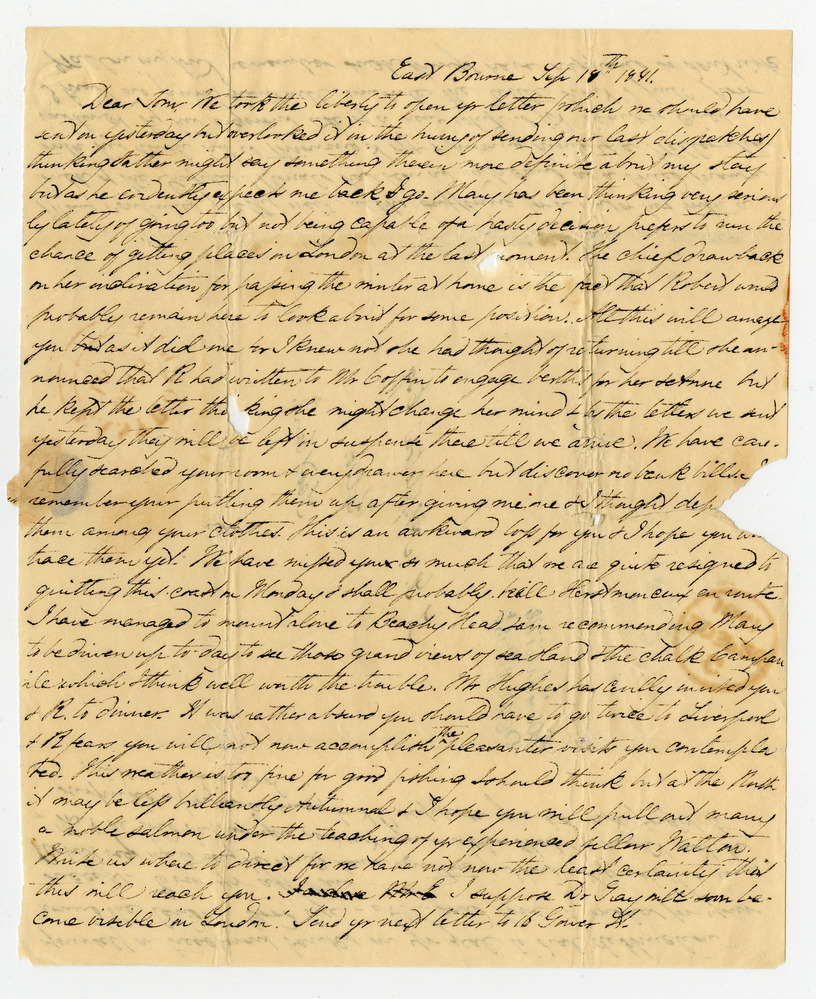 East Bourne Sep 18th 1841.
Dear Tom, We took the liberty to open yr letter (which we should have
sent on yesterday but overlooked it in the hurry of sending our last dispatches)
thinking Father might say something therein more definite about my stay
but as he evidently expects me back I go. Mary has been thinking very serious
ly lately of going too but not being capable of a hasty decision prefers to run the
chance of getting places in London at the last moment. The chief drawback
on her inclination for passing the winter at home is the fact that Robert would
probably remain here to look about for some position. All this will amaze
you but as it did me for I knew not she had thought of returning till she an-
nounced that R had written to Mr Coffin to engage berths for her & Anne but
he kept the letter thinking she might change her mind & by the letters we sent
yesterday they will be left in suspense there till we arrive. We have care-
fully searched your room & every drawer here but discover no bank bills. I
remember your putting them up after giving me one & I thought dep
them among your clothes. This is an awkward loss for you & I hope you
trace them yet. We have missed you so much that we are quite resigned to
quitting this coast on Monday & shall probably visit Herstmonceux en route
I have managed to mount alone to Beachy Head & am recommending Mary
to be driven up to day to see those grand views of sea & land & the chalk
which I think well worth the trouble. Mr Hughes has civilly invited you
& R. to dinner. It was rather absurd you should have to go twice to Liverpool
& R fears you will not now accomplish the pleasanter visits you contempla
ted. This weather is too fine for good fishing I should think but at the North
it may be less brilliantly Autumnal & I hope you will pull out many
a noble salmon under the teaching of yr experienced fellow Walton.
Write us where to direct for we have not now the least certainty that
this will reach you. I suppose Dr Gray will soon be-
come visible in London! Send yr next letter to 16 Gower St.